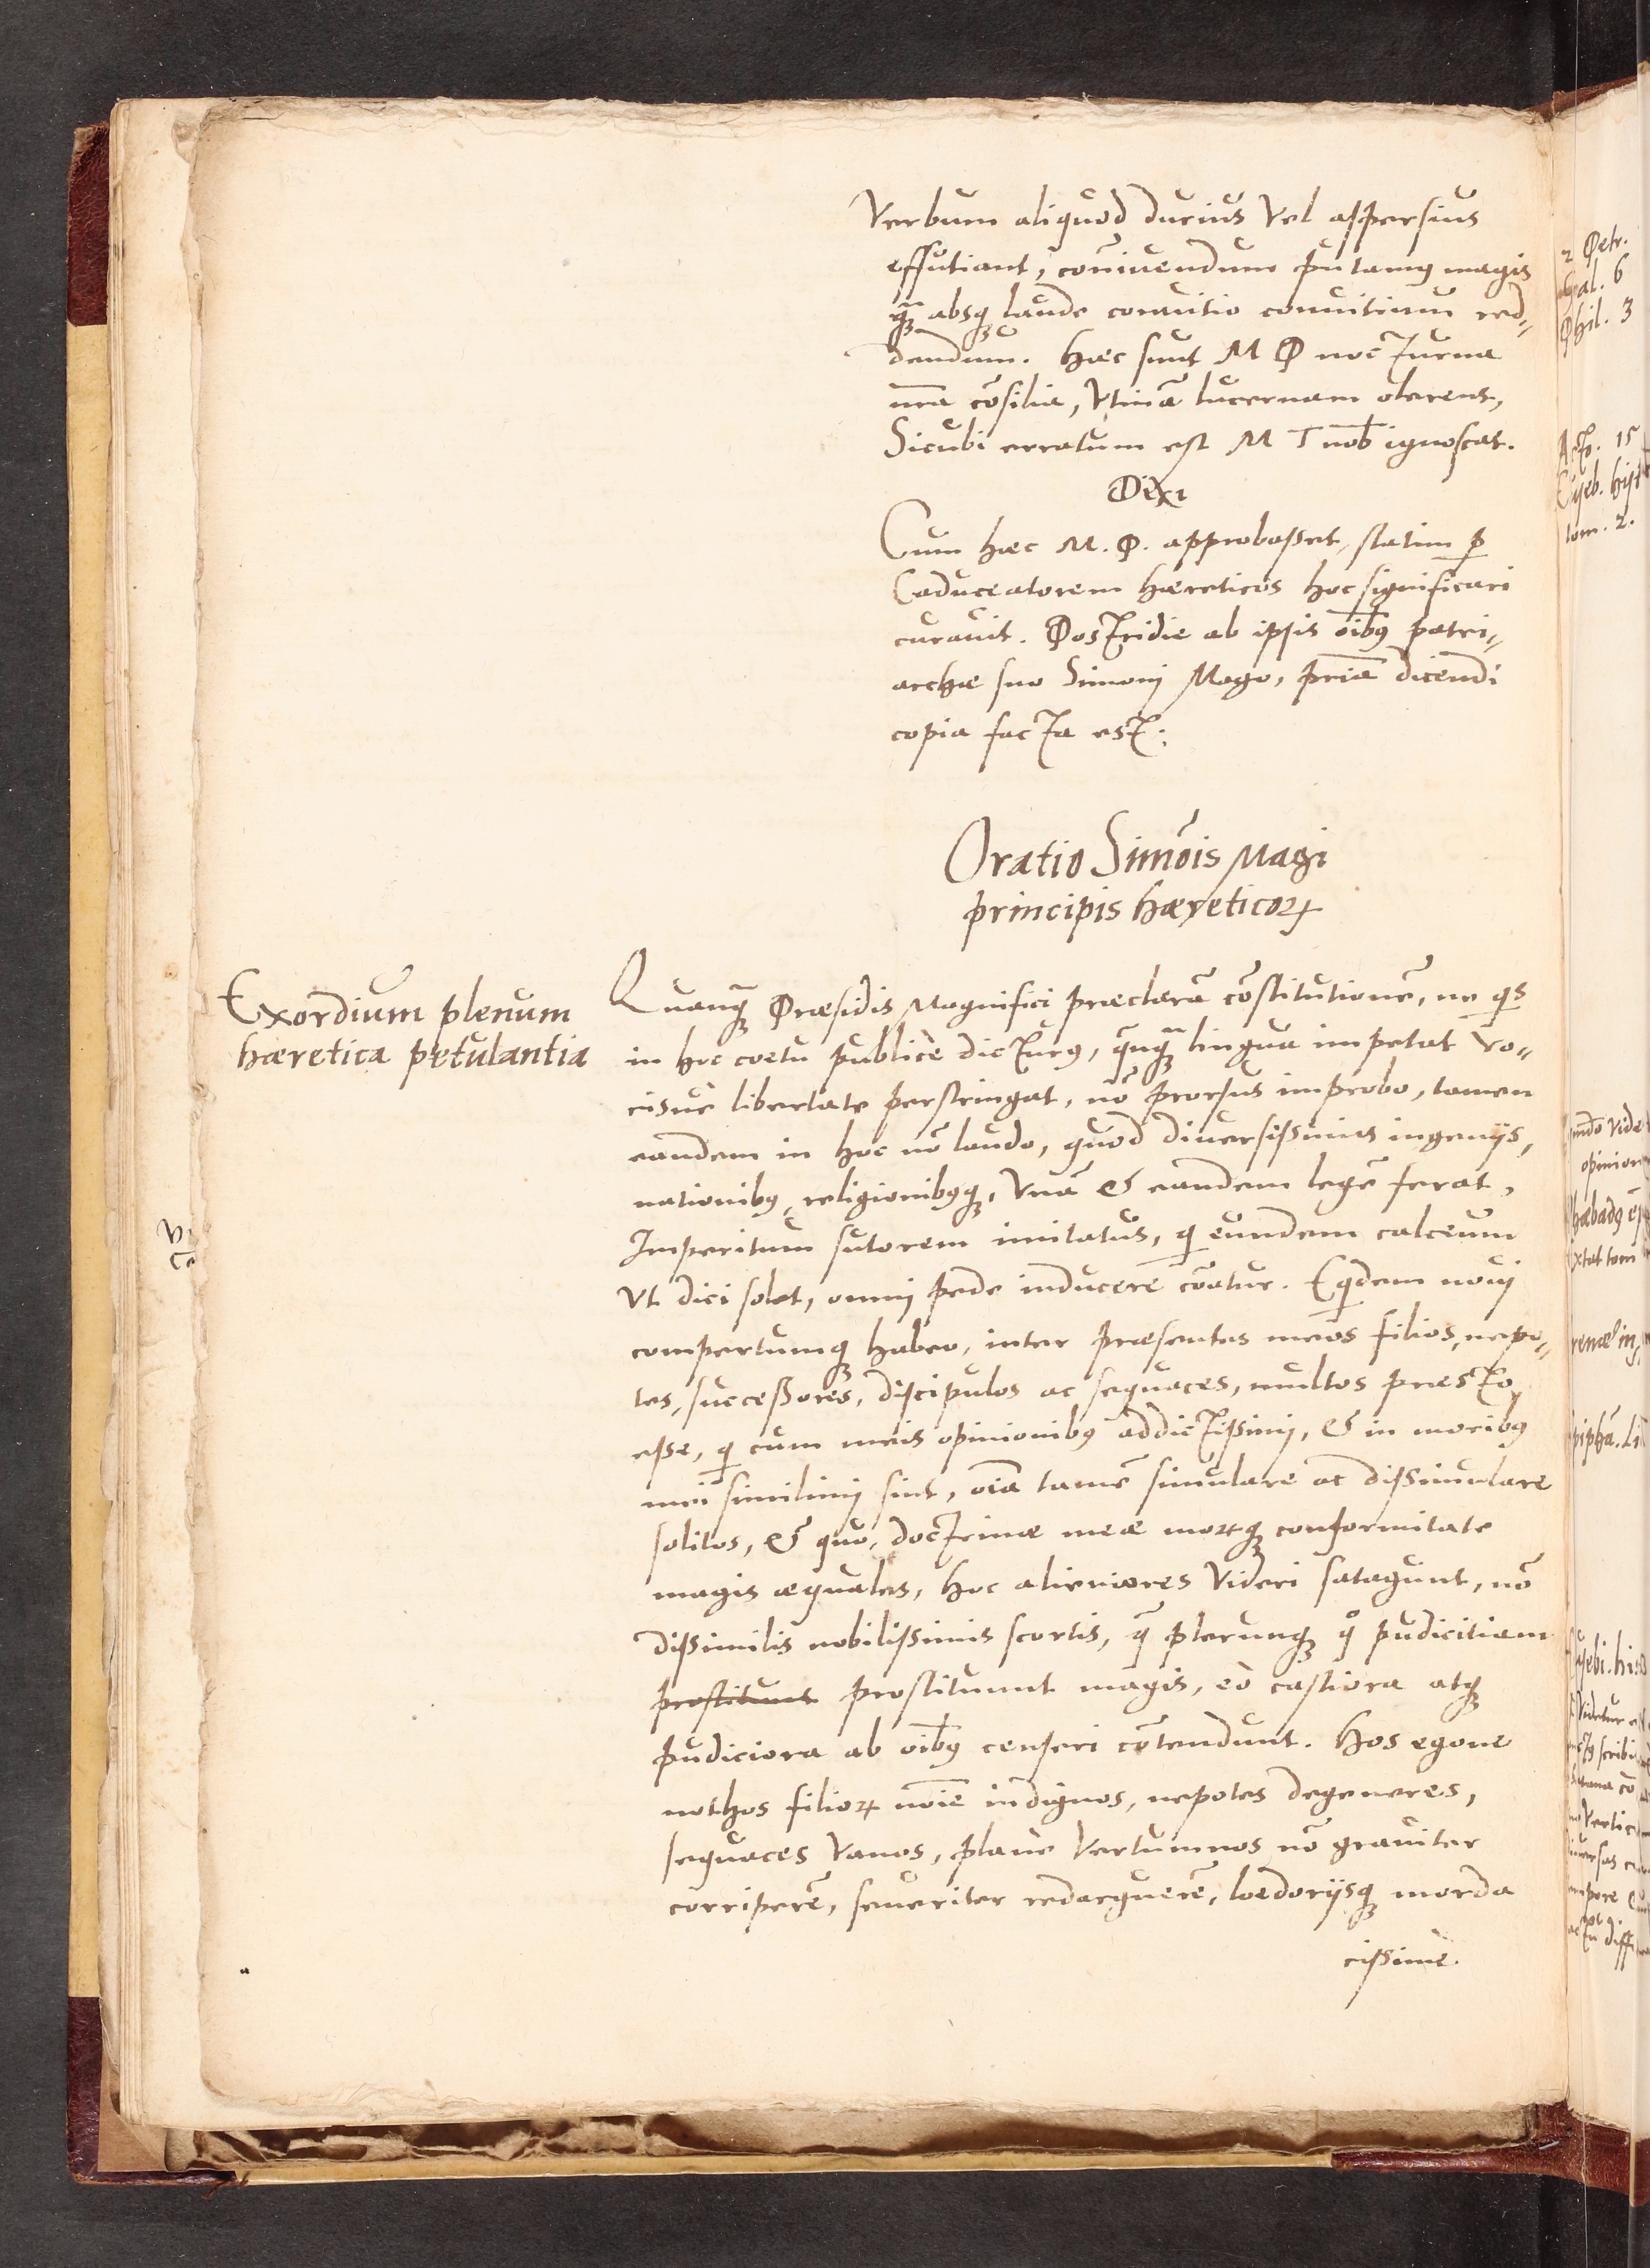 Verbum aliquod durius vel asspersius
effutiant, conīuendum putamus magis
quā absq laude conuitio conuitium red„
dendum. Haec sunt M P nocturna
nr̄a cōsilia, vtinā lucernam olerent,
Sicubi erratum est M T nob̄ ignoscat.
Dixi
Cum haec M. P. approbasset, statim ꝑ
Caduceatorem haereticos hoc significari
curauit. Postridie ab ipsis oīb9 patri„
archae suo Simonj Mago, prīa dicendi
copia facta est.
Oratio Simōis Magi
principis haereticoꝝ
Exordium plenum
haeretica petulantia
Quanq̄ Praesidis Magnifici praeclarā cōstitutionē, ne qs
in hoc coetu publice dictur9, qnq̄ lingua impetat vo„
cisue libertate perstringat, nō prorsus improbo, tamen
eandem in hoc nō laudo, quod diuersissimis ingenijs,
nationib9, religionib9q, vnā & eandem legē ferat,
Imperitum sutorem imitatus, q eundem calceum
vt dici solet, omnj pede inducere cōatur. Eqdem nouj
compertumq habeo, inter praesentes meos filios, nepo„
tes, successores, discipulos ac sequaces, multos praesto
esse, q cum meis opinionib9 addictissimj, & in morib9
mei simillimj sint, oīa tamē simulare ac dissimulare
solitos, & quo, doctrinae meae moꝝq conformitate
magis aequales, hoc alieniores videri satagunt, nō
dissimilis nobilissimis scortis, q̄ plerunq qͦ pudicitiam
prostitunt prostituunt magis, eo castiora atq
pudiciora ab oīb9 censeri cōtendunt. Hos egone
nothos filioꝝ noīe indignos, nepotes degeneres,
sequaces vanos, plane Vertumnos nō grauiter
corriperē, seueriter redarguerē, loedorijsq morda
cissime.
2 Petr.
Gal. 6
Phil. 3
Acto. 15
tom. 2.